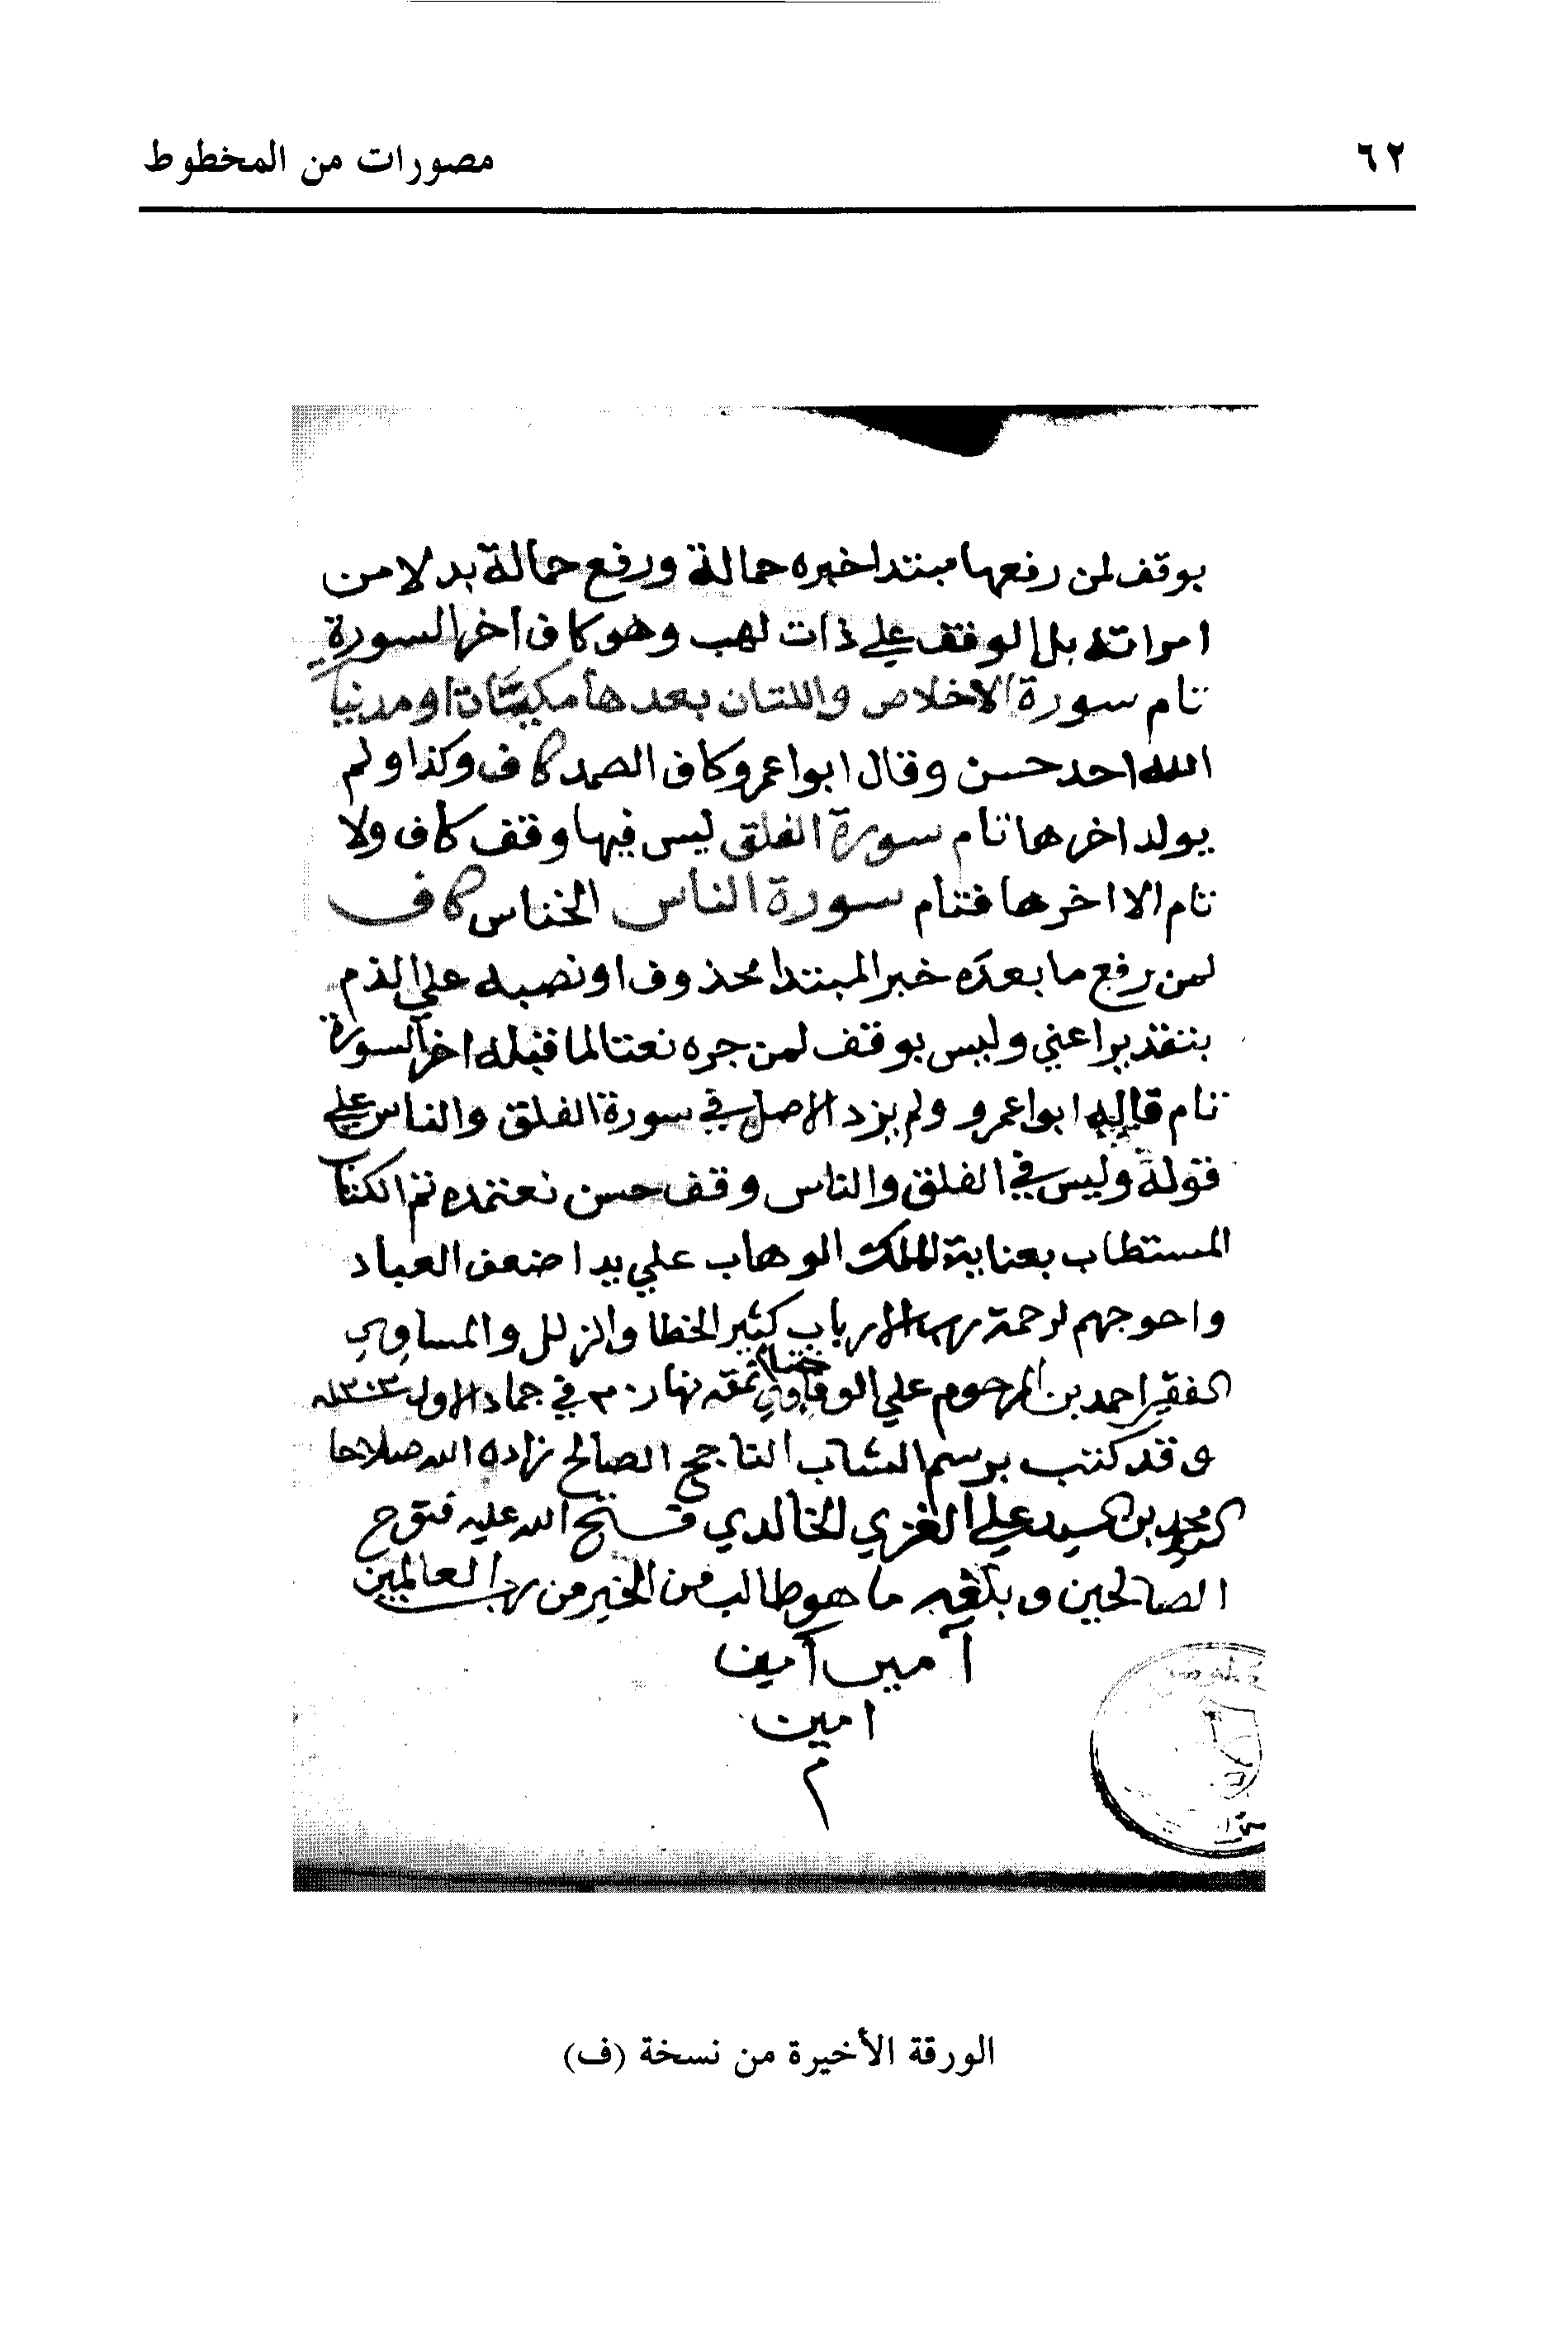 ٦٢
مصورات من المخطوط
بوقف لمن رفعها مبتدا خبره حمالة ورفع حمالة بدلا من
امراته بل الوقف علي ذات لهب وهو كاف اخر السورة
تام سورة الاخلاص واللتان بعدها مكيتان او مدنيتان
الله احد حسن وقال ابوا عمرو كاف الصمد كاف وكذا ولم
يولد اخرها تام سورة الفلق ليس فيها وقف كاف ولا
تام الا اخرها فتام سورة الناس الخناس كاف
لمن رفع ما بعده خبر المبتدا محذوف او نصبه علي الذم
بتقدير اعني وليس بوقف لمن جره نعتا لما قبله اخر السورة
تام قاله ابوا عمرو ولم يزد الاصل في سورة الفلق والناس علي
قوله وليس في الفلق والناس وقف حسن نعتمده تم الكتاب
المستطاب بعناية الملك الوهاب علي يد اضعف العباد
واحوجهم لرحمة رب الارباب كثير الخطا والزلل والمساوي
الفقير احمد بن المرحوم علي نهار في جماد الاول ١٣٠٣
وقد كتب برسم الشاب الناجح الصالح زاده الله صلاحا
محمد بن السيد علي الغزي الخالدي فتح الله عليه فتوح
الصالحين وبلغه ما هو طالب من الخير من رب العالمين
آمين آمين
امين
م
الورقة الأخيرة من نسخة (ف)